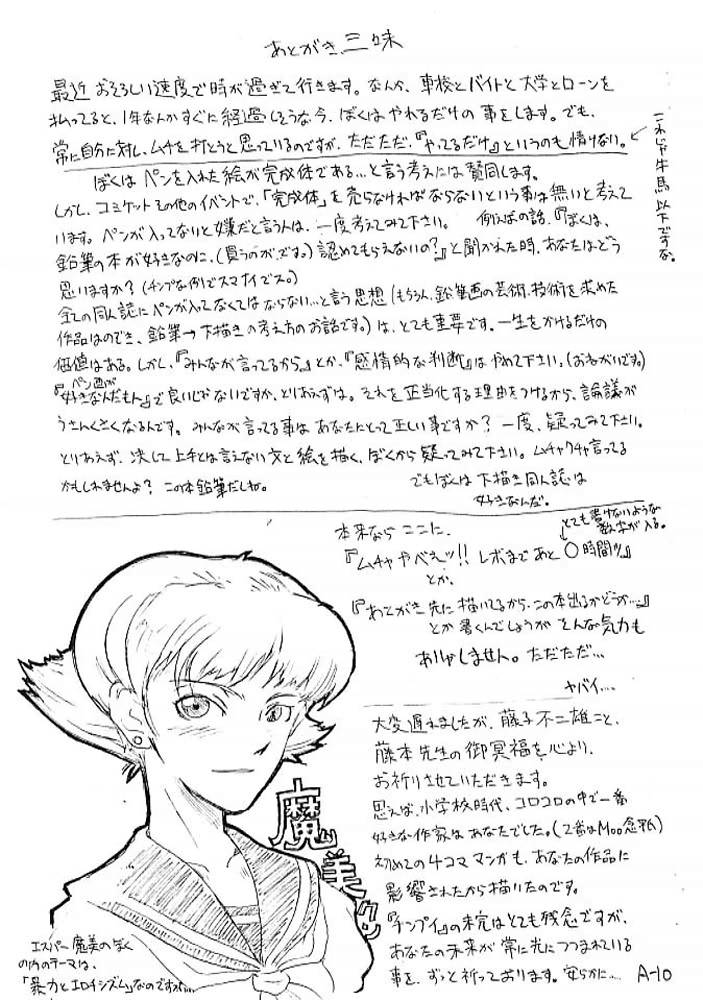 あとがき三昧
最近 おそろしい速度で時が過ぎて行きます。なんか、車校とバイトと大学とローンを
払ってると、1年なんかすぐに経過しそうな今、ぼくはやれるだけの事をします。でも、
常に自分に対し、ムチを打とうと思っているのですが、ただただ、『やってるだけ』というのも情けない。
これじゃ牛馬以下ですな。
ぼくはペンを入れた絵が完成体である…と言う考えには賛同します。
しかし、コミケットその他のイベントで、「完成体」を売らなければならないという事は無いと考えて
います。ペンが入ってないと嫌だと言う人は、一度考えてみて下さい。 例えばの話、『ぼくは、
鉛筆の本が好きなのに、(買うのが、です。)認めてもらえないの?』と聞かれた時、あなたはどう
思いますか?(チンプな例でスマナイでス。)
全ての同人誌にペンが入ってなくてはならない…と言う思想(もちろん、鉛筆画の芸術、技術を求めた
作品はのぞき、鉛筆→下描きの考え方のお話です。)は、とても重要です。一生をかけるだけの
価値はある。しかし、『みんなが言ってるから。』とか、『感情的な判断』はやめて下さい。(おねがいです。)
『ペン画が好きなんだもん』で良いじゃないですか、とりあえずは。それを正当化する理由をつけるから、論議が
うさんくさくなるんです。みんなが言ってる事はあなたにとって正しい事ですか? 一度、疑ってみて下さい。
とりあえず、決して上手とは言えない文と絵を描く、ぼくから疑ってみて下さい。ムチャクチャ言ってる
かもしれませんよ? この本鉛筆だしね。
でもぼくは下描き同人誌は
好きなんだ。
本来なら ここに、
とても書けないような
数字が入る。
『ムチャやべぇッ!! レボまであと ○時間!!』
とか、
『あとがき先に描いてるから、この本出るかどうか…。』
とか書くんでしょうが そんな気力も
ありゃしません。ただただ…
ヤバイ….
大変遅れましたが、藤子不二雄こと、
藤本先生の御冥福を心より、
お祈りさせていただきます。
思えば、小学校時代、コロコロの中で一番
好きな作家はあなたでした。(2番はMoo念平)
初めての4コママンガも、あなたの作品に
影響されたから描けたのです。
『チンプイ』の未完はとても残念ですが、
あなたの未来が常に光につつまれている
事を、ずっと祈っております。安らかに…
A-10
魔美クン
エスパー魔美のぼく
の内のテーマは、
「暴力とエロイシズム」なのですが…